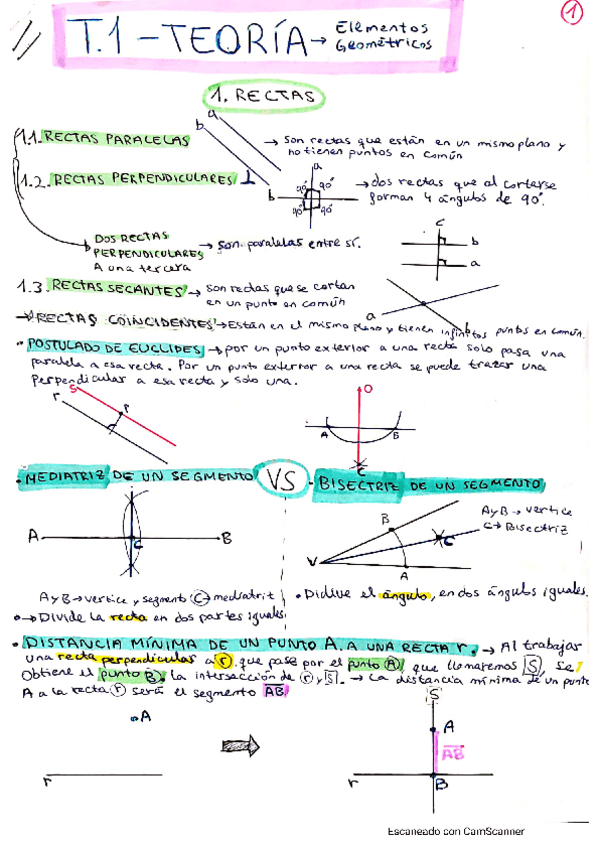 1
T.1 - TEORÍA → Elementos
Geométricos
1. RECTAS
a
b
1.1. RECTAS PARALELAS → son rectas que están en un mismo plano y
no tienen puntos en común
1.2. RECTAS PERPENDICULARES ⊥ → dos rectas que al cortarse
forman 4 ángulos de 90°.
a
b
90° 90°
90° 90°
DOS RECTAS
PERPENDICULARES → son paralelas entre sí.
A una tercera
c
b
a
1.3. RECTAS SECANTES → son rectas que se cortan
en un punto en común
a
→ RECTAS COINCIDENTES → Están en el mismo plano y tienen infinitos puntos en común.
• POSTULADO DE EUCLIDES → por un punto exterior a una recta solo pasa una
paralela a esa recta. Por un punto exterior a una recta se puede trazar una
perpendicular a esa recta y solo una.
S
r
P
O
A B
C
• MEDIATRIZ DE UN SEGMENTO VS • BISECTRIZ DE UN SEGMENTO
A C B
V B C A
A y B → vertice
C → Bisectriz
A y B → vertice y segmento C → mediatriz
• → Divide la recta en dos partes iguales.
• Didive el ángulo, en dos ángulos iguales.
• DISTANCIA MÍNIMA DE UN PUNTO A. A UNA RECTA r. → Al trabajar
una recta perpendicular a r que pase por el punto A, que llamaremos S, se
Obtiene el punto B. la intersección de r y S. → La distancia mínima de un punto
A a la recta r será el segmento AB
A
r
S
A
AB
r B
Escaneado con CamScanner